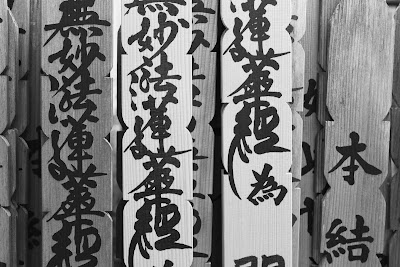 本結
蓮華経為
無妙法蓮華経
無妙法蓮華経